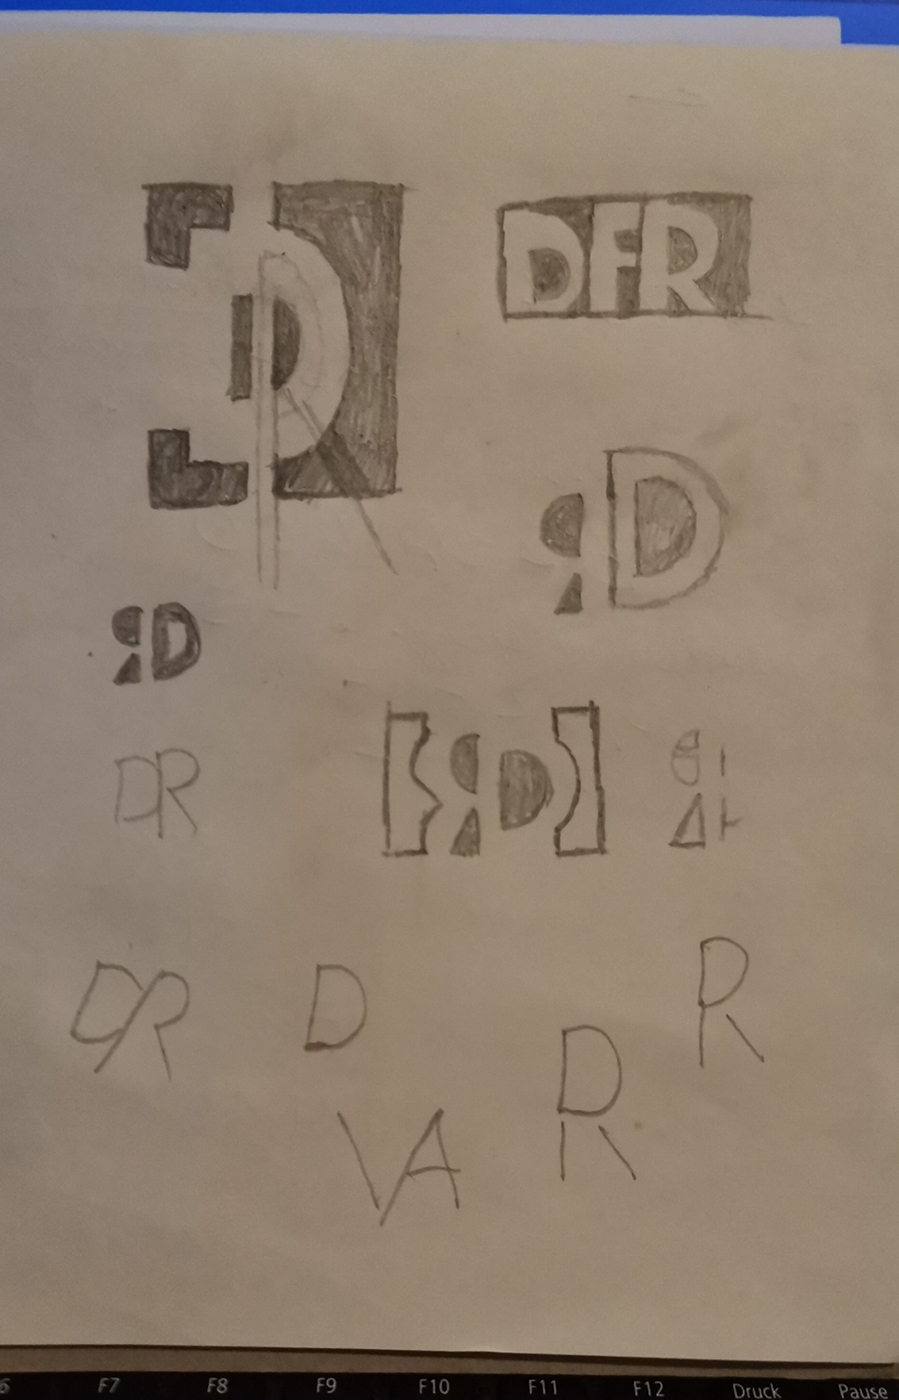 DFR
DR
DR
D
R
R
VA
F7 F8 F9 F10 F11 F12 Druck Pause